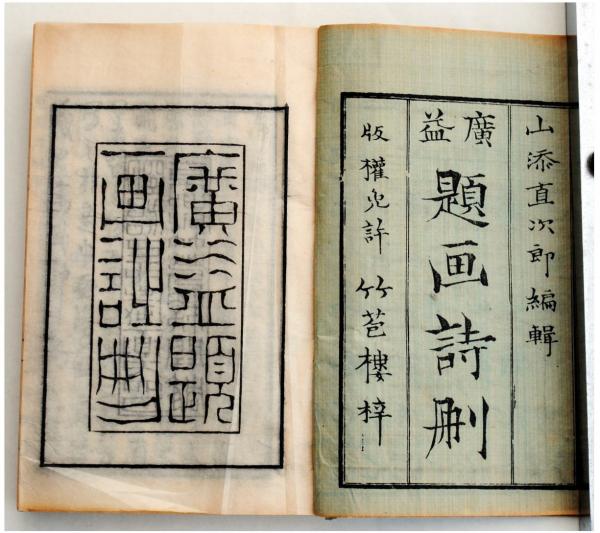 山添直次郎編輯
廣益
題画詩刪
版權免許　竹苞樓梓
廣益題
画詩刪